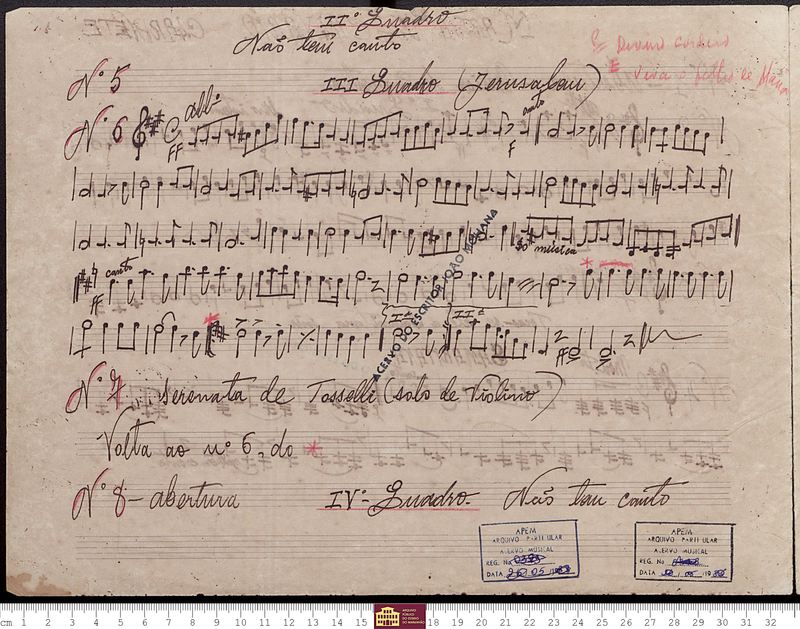 IIº Quadro
Não tem canto
Nº 5
III Quadro (Jerusalem)
Nº 6 allº
FF
f
canto
só musica
canto
ff
Iª IIª
FF
Nº 7 Serenata de Tosselli (solo de Violino)
Volta ao nº 6, do *
Nº 8 - abertura IVº Quadro - Não tem canto
ACERVO DO ESCRITOR JOÃO MOHANA
APEM
ARQUIVO PARTICULAR
ACERVO MUSICAL
REG. No
DATA
APEM
ARQUIVO PARTICULAR
ACERVO MUSICAL
REG. No
DATA
cm 1 2 3 4 5 6 7 8 9 10 11 12 13 14 15 18 19 20 21 22 23 24 25 26 27 28 29 30 31 32
ARQUIVO
PÚBLICO
DO ESTADO
DO MARANHÃO